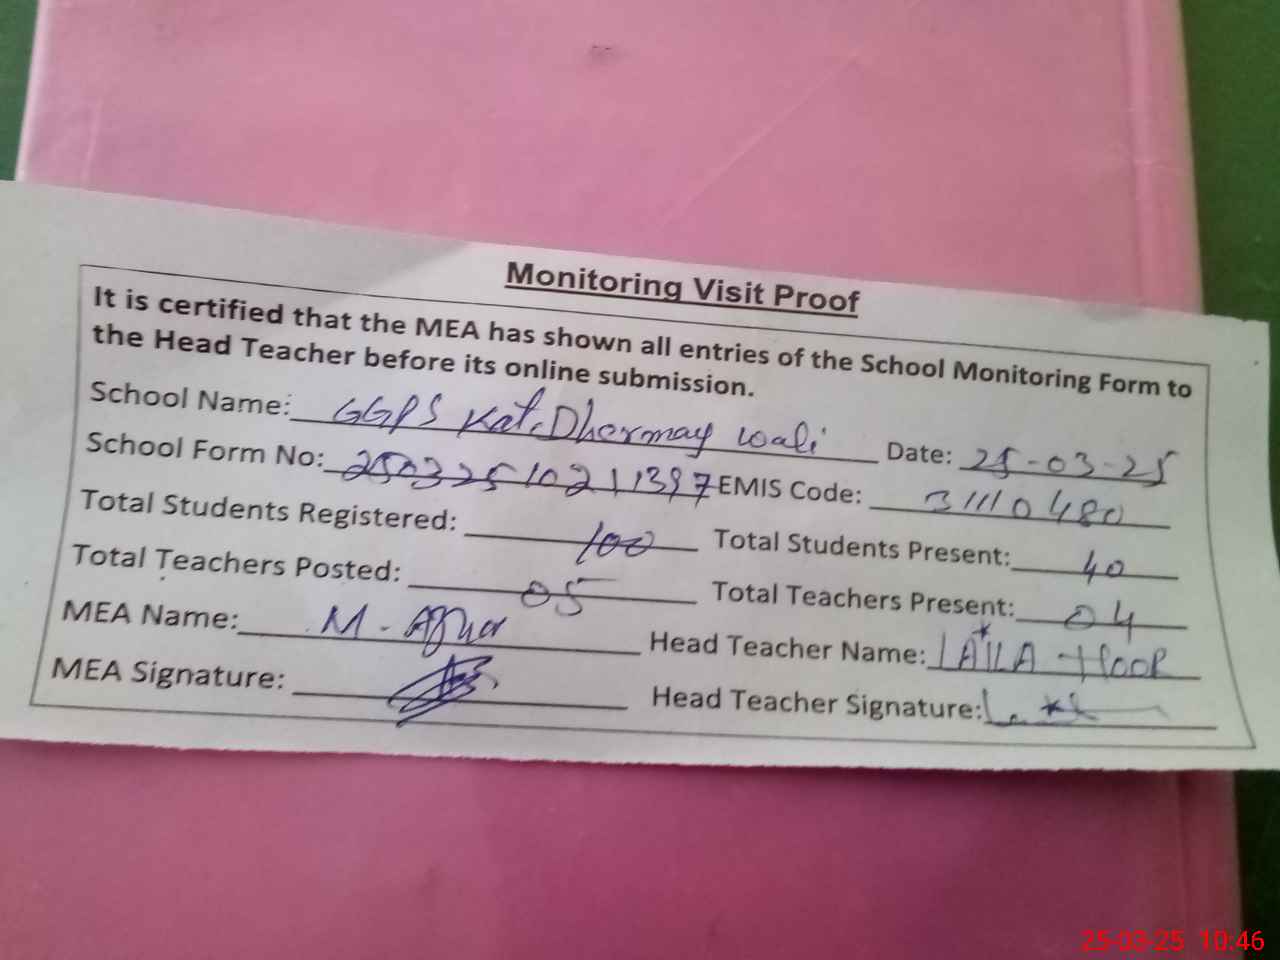 Monitoring Visit Proof
It is certified that the MEA has shown all entries of the School Monitoring Form to
the Head Teacher before its online submission.
School Name: GGPS Kat. Dhormay wali Date: 25-03-25
School Form No: 25032510211397 EMIS Code: 31110480
Total Students Registered: 100 Total Students Present: 40
Total Teachers Posted: 05 Total Teachers Present: 04
MEA Name: M. Head Teacher Name: LAILA HOOR
MEA Signature: Head Teacher Signature:
25-03-25 10:46